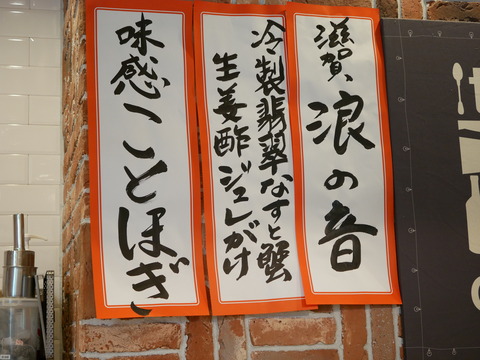 滋賀、浪の音
冷製翡翠なすと蟹
生姜酢ジュレがけ
味感ことほぎ